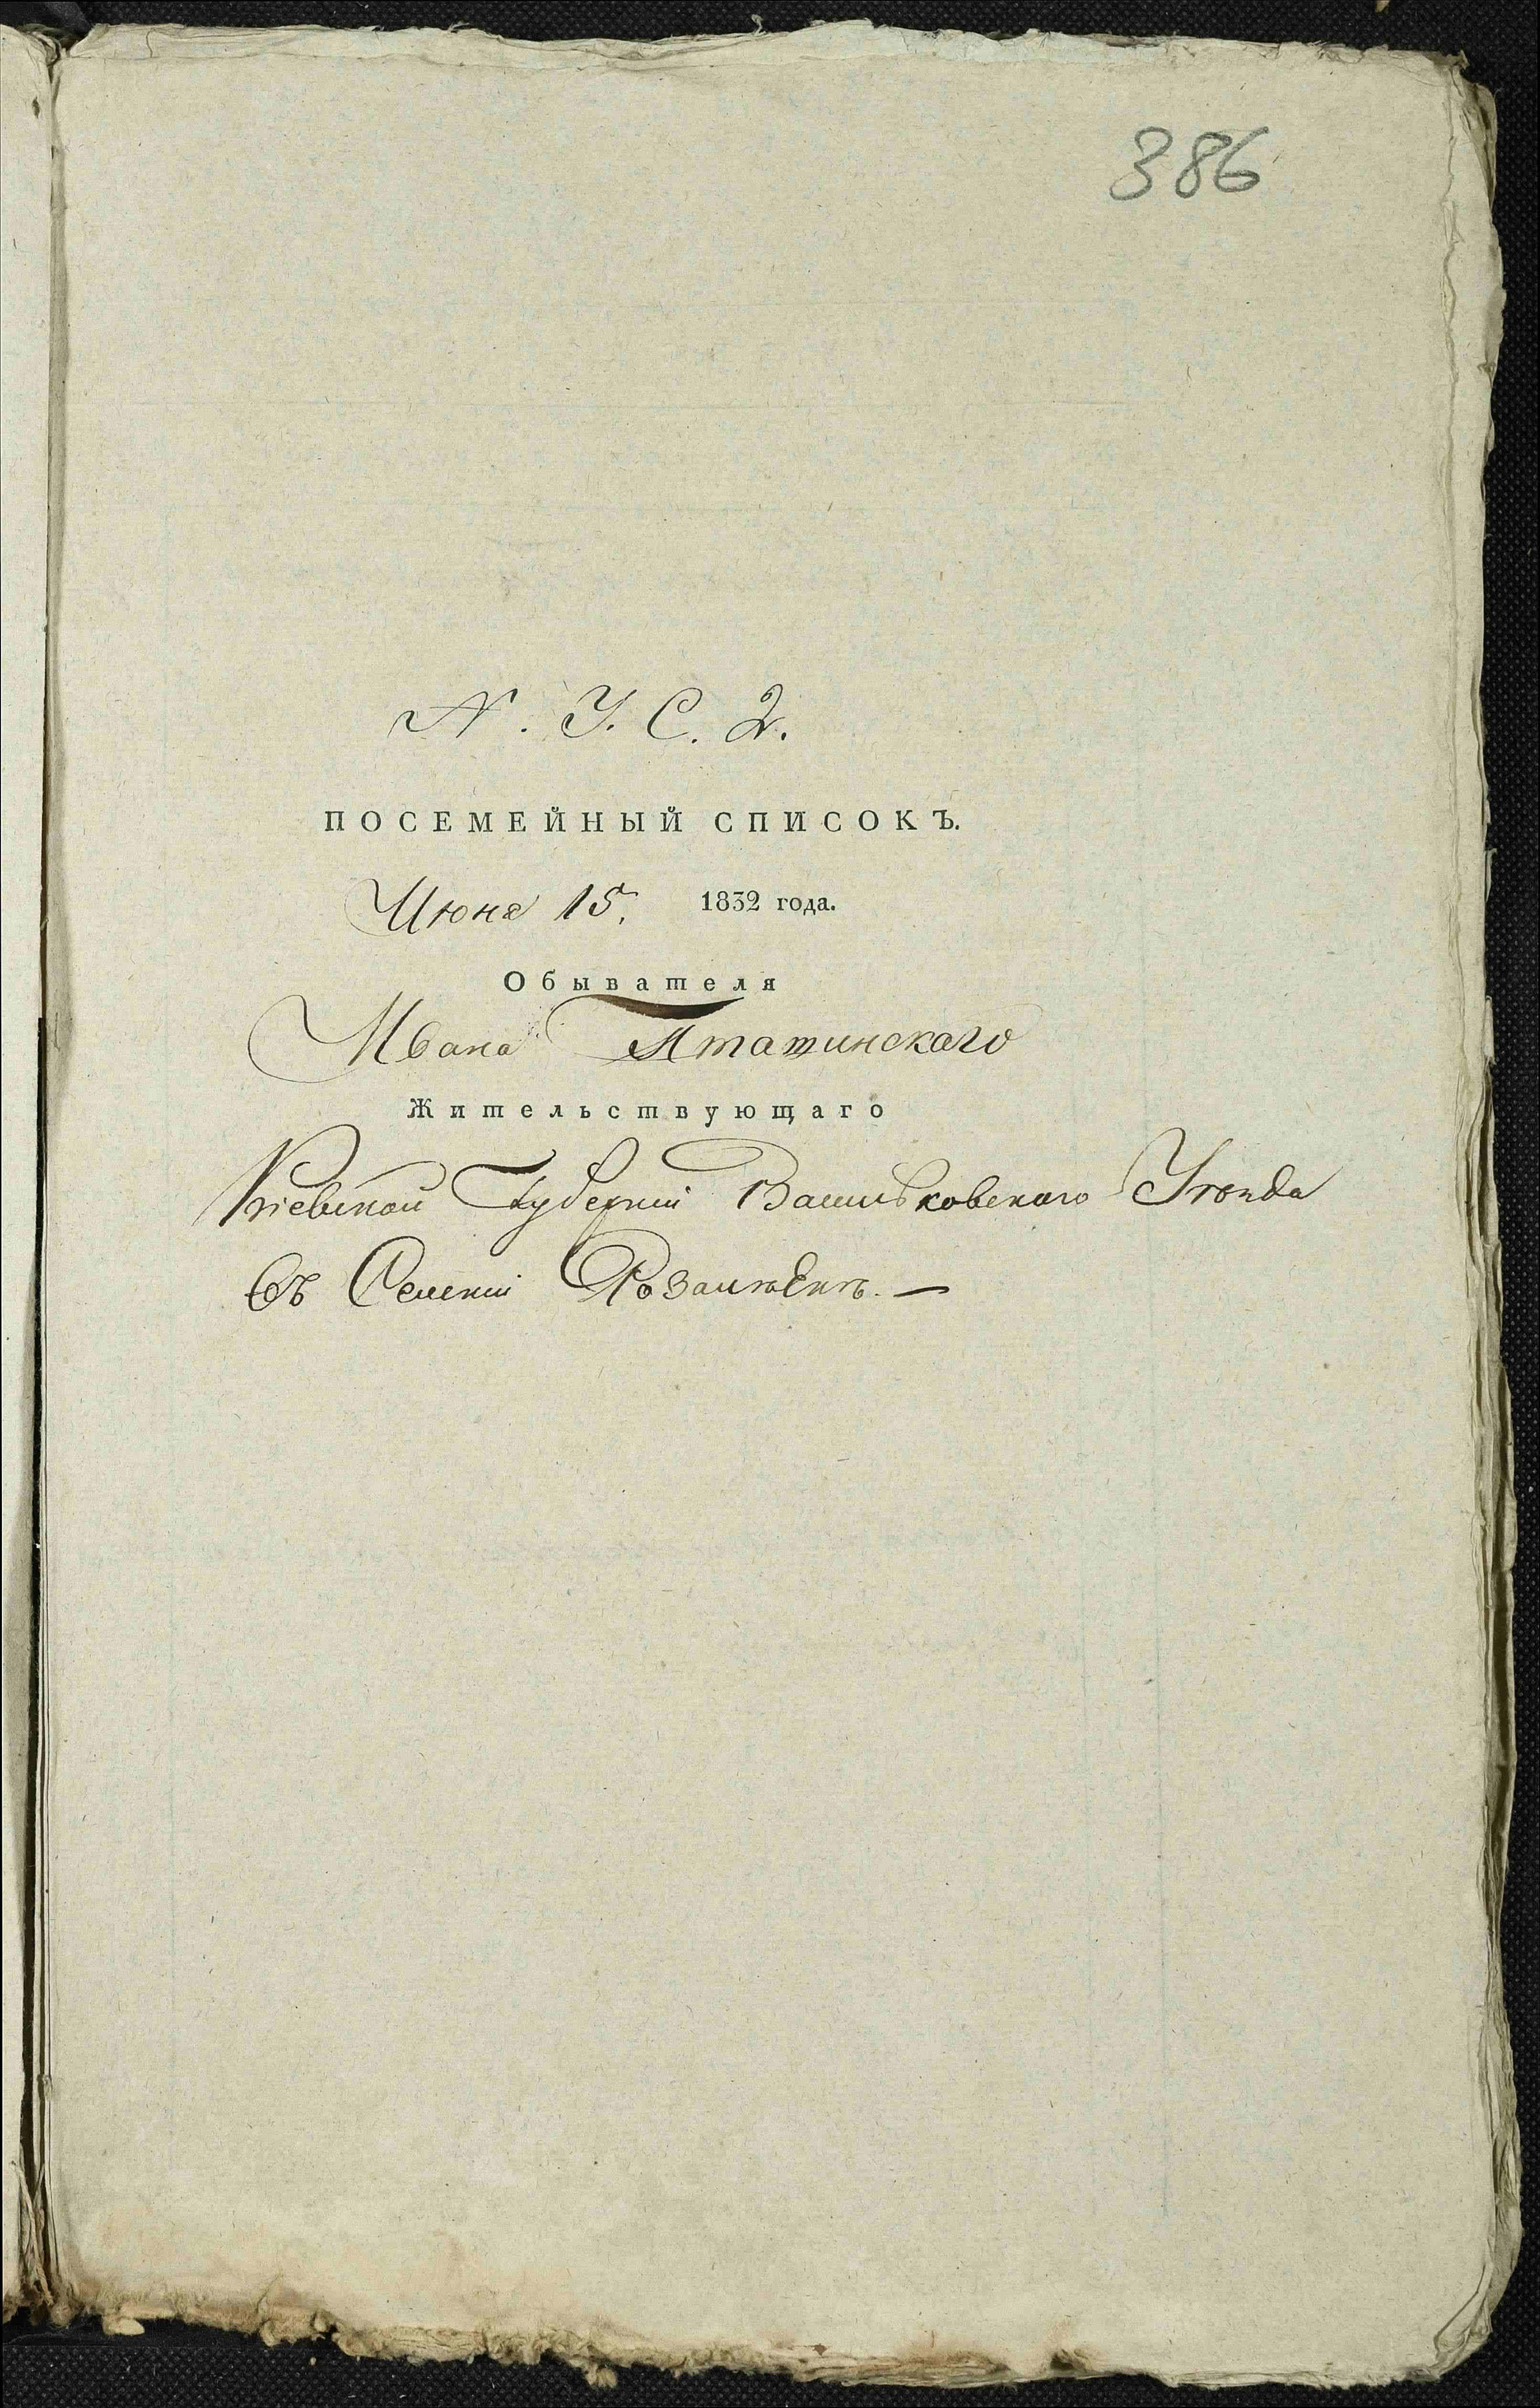 386
N. У. С. 2.
ПОСЕМЕЙНЫЙ СПИСОКЪ.
Июня 15. 1832 года.
Обывателя
Ивана
Жительствующаго
Кіевской Губерніи Васильковскаго Уѣзда
Въ Селеніи